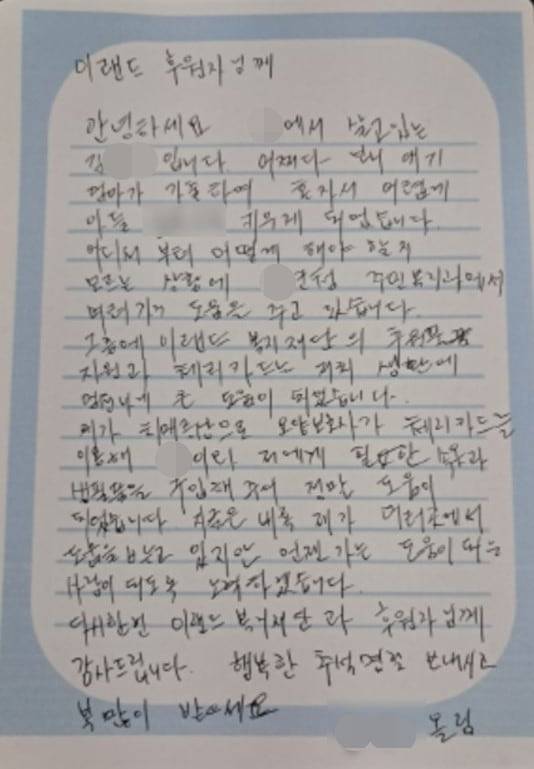 이랜드 후원자님께
안녕하세요 에서 살고있는
김 입니다. 어쩌다 보니 애기
엄마가 가출하여 혼자서 어렵게
아들 키우게 되었습니다.
어디서 부터 어떻게 해야 할지
모르는 상황에 군청 주민복지과에서
여러가지 도움을 주고 있습니다.
그중에 이랜드 복지재단의 후원
지원과 체리카드는 저희 생활에
엄청나게 큰 도움이 되었습니다.
제가 치매증상으로 요양보호사가 체리카드를
이용해 이와 저에게 필요한 식품과
생필품을 구입해 주어 정말 도움이
되었습니다 지금은 비록 제가 여러곳에서
도움을 받고 있지만 언젠가는 도움이 되는
사람이 되도록 노력하겠습니다.
다시한번 이랜드 복지재단과 후원자님께
감사드립니다. 행복한 추석명절 보내시고
복많이 받으세요
올림